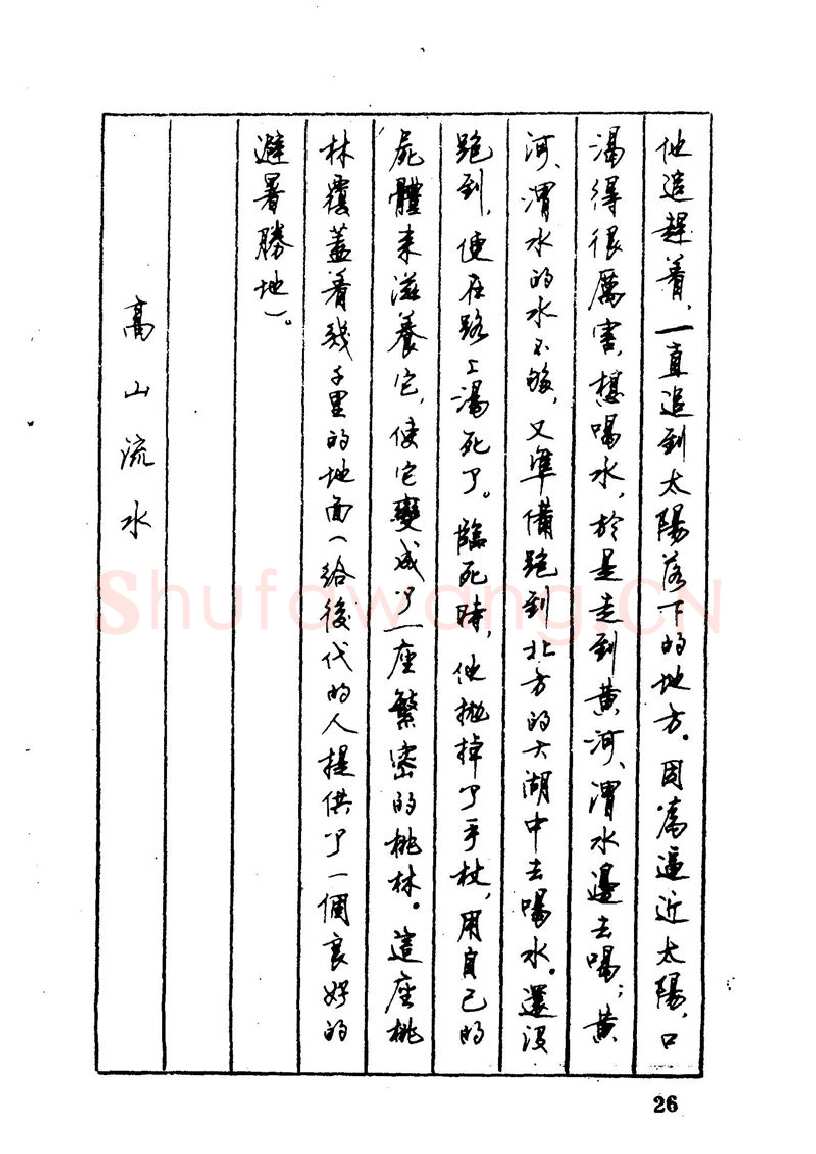 他追趕着，一直追到太陽落下的地方。因為逼近太陽，口
渴得很厲害，想喝水，於是走到黄河、渭水邊去喝；黄
河、渭水的水不够，又準備跑到北方的大湖中去喝水。還没
跑到，便在路上渴死了。臨死時，他拋掉了手杖，用自己的
屍體來滋養它，使它變成了一座繁密的桃林。這座桃
林覆蓋着幾千里的地面（給後代的人提供了一個良好的
避暑勝地）。
高山流水
Shufawang.CN
26